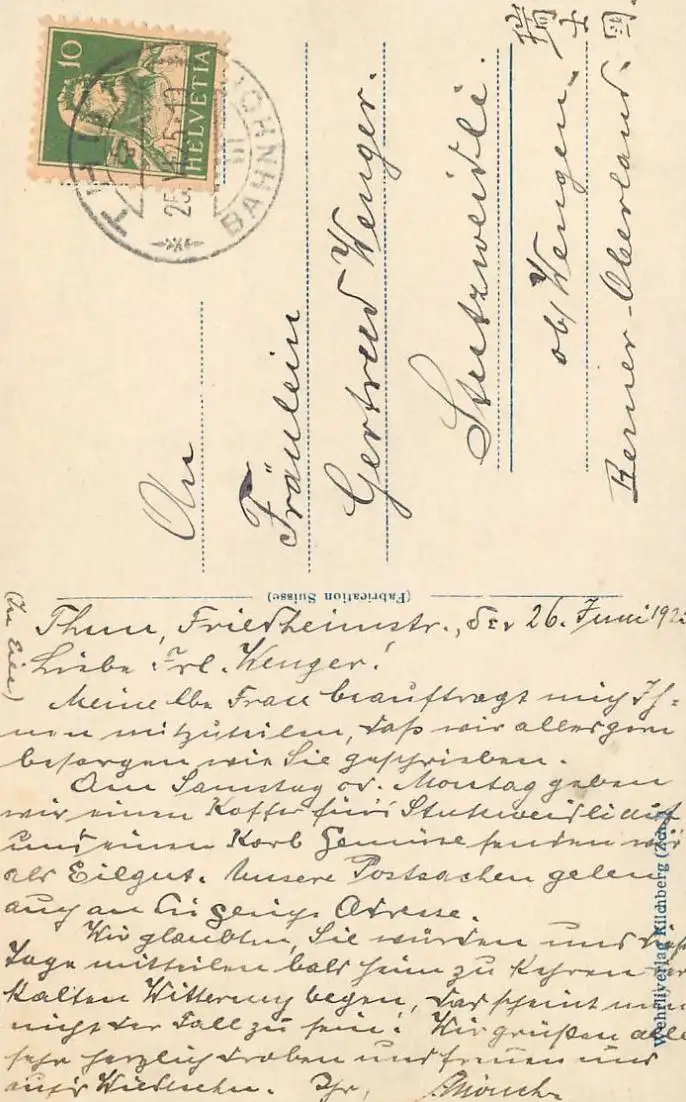 10
HELVETIA
THUN
BAHNHOF
An
Fräulein
Gertrud Wenger.
Stutzweidli.
ob/Wengen.
Berner-Oberland.
瑞士国.
(Fabrication Suisse)
Wehrliverlag Kilchberg (Zch.)
(In Eile)
Thun, Friedheimstr., den 26. Juni 192
Liebe Frl. Wenger!
Meine lbe Frau beauftragt mich Ih-
nen mitzuteilen, daß wir alles gern
besorgen wie Sie geschrieben.
Am Samstag od. Montag geben
wir einen Koffer für's Stutzweidli auf
und einen Korb Gemüse senden wir
als Eilgut. Unsere Postsachen gehen
auch an Adresse.
Wir glaubten, Sie würden uns diese
Tage mitteilen bald heim zu kehren der
kalten Witterung wegen, das scheint nun
nicht der Fall zu sein! Wir grüßen alle
sehr herzlich droben und freuen uns
auf's Wiedersehn. Ihr,